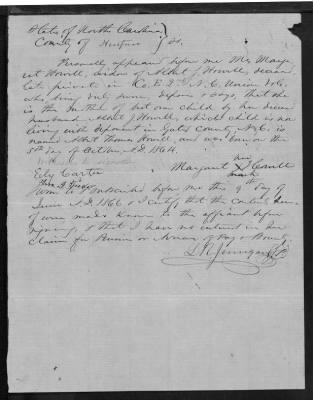 State of North Carolina }
County of Hertford } SS.
Personally appeared before me Mrs Marga-
ret Howell, widow of Albert J Howell, deceas,
late private in Co. E 2nd N. C. Union Vols.
who being duly sworn, deposes & says, that she
is the Mother of but one Child by her dec
husband Albert J Howell, which child is now
living with deponent in Gates County, N.C. is
named Albert Thomas Howell, and was born on the
5th day of October A.D. 1864.
Ely Carter
her
Margaret X Howell
mark
Sworn to & subscribed before me this 9th day of
June A.D. 1866 & I certify that the contents here-
of were made known to the affiant before
signing, & that I have no interest in her
Claim for Pension or Arrears of Pay & Bounty.